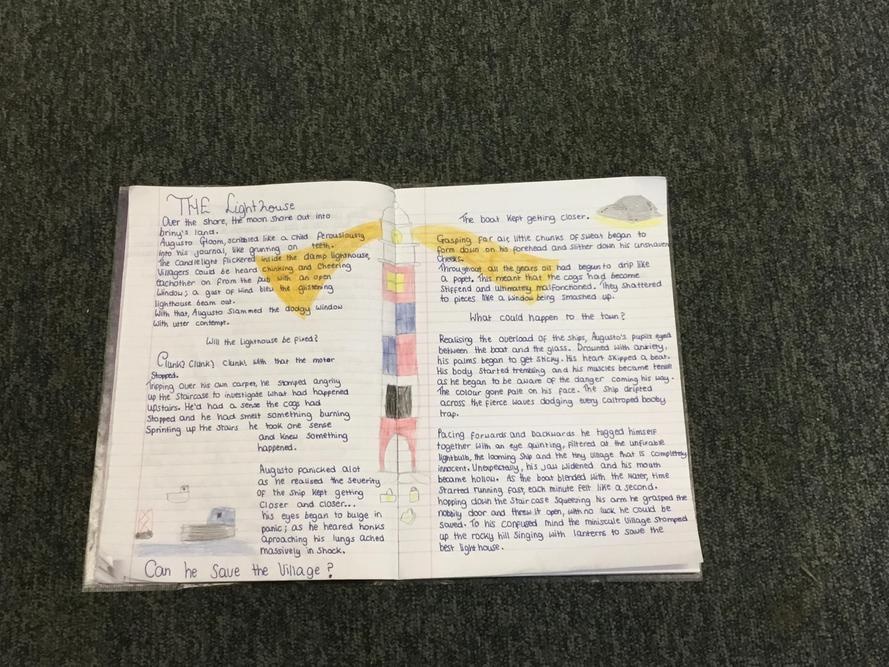 THE Lighthouse
Over the shore, the moon shone out into
briny's land.
Augusto Gloom, scribbled like a child ferousiously
into his journal, like grunting on teeth.
The Candlelight flickered inside the damp lighthouse,
Villagers Could be heard chinking and Cheering
eachother on from the pub with an open
Window; a gust of wind blew the glistening
lighthouse beam out.
With that, Augusto Slammed the dodgy window
with utter contempt.
Will the Lighthouse be fixed?
Clunk! Clunk! Clunk! With that the motor
Stopped.
Tripping Over his own carpet, he stomped angrily
up the Staircase to investigate what had happened
upstairs. He'd had a sense the cogs had
Stopped and he had smelt something burning
Sprinting up the Stairs he took one sense
and knew something
happened.
Augusto panicked alot
as he realised the severity
of the ship kept getting
Closer and closer...
his eyes began to bulge in
panic; as he heared honks
aproaching his lungs ached
massively in Shock.
Can he Save the Village?
The boat kept getting closer.
Gasping for air, little chunks of sweat began to
form down on his forehead and slitter down his unshaven
Cheeks.
Throughout all the gears oil had begun to drip like
a popet. This meant that the cogs had become
Stiffend and ultimatly malfonctioned. They Shattered
to pieces like a window being smashed up.
What could happen to the town?
Realising the overload of the ships, Augusto's pupils eyed
between the boat and the glass. Drowned with anxiety,
his palms began to get Sticky. His heart skipped a beat.
His body started trembling and his muscles became tense
as he began to be aware of the danger coming his way.
The colour gone pale on his face. The Ship drifted
across the fierce waves dodging every caltroped booby
trap.
Pacing forwards and backwards he tugged himself
together with an eye quinting, filtered at the unfixable
lightbulb, the looming ship and the tiny village that is completely
innocent. Unexpectesly, his jaw widened and his mouth
became hollow. As the boat blended with the water, time
Started running fast, each minute felt like a second.
hopping down the Stair case squeezing his arm he grasped the
nobbily door and threw it open, with no luck he could be
Saved. To his confused mind the miniscule Village Stomped
up the rocky hill Singing with lanterns to save the
best lighthouse.